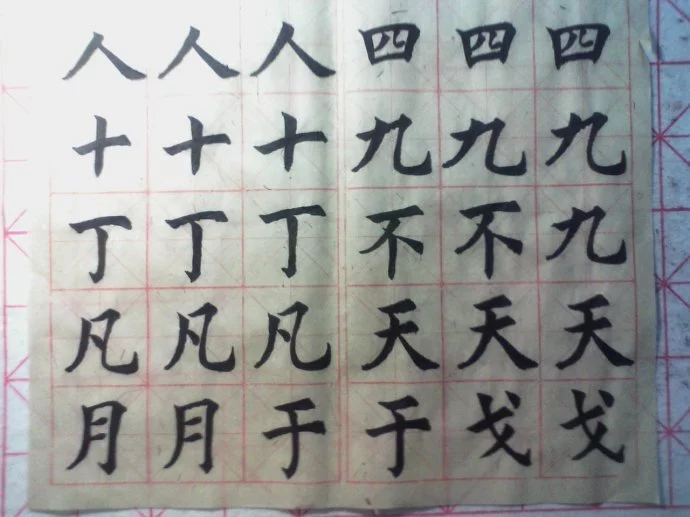 人人人四四四
十十十九九九
丁丁丁不不九
凡凡凡天天天
月月于于戈戈